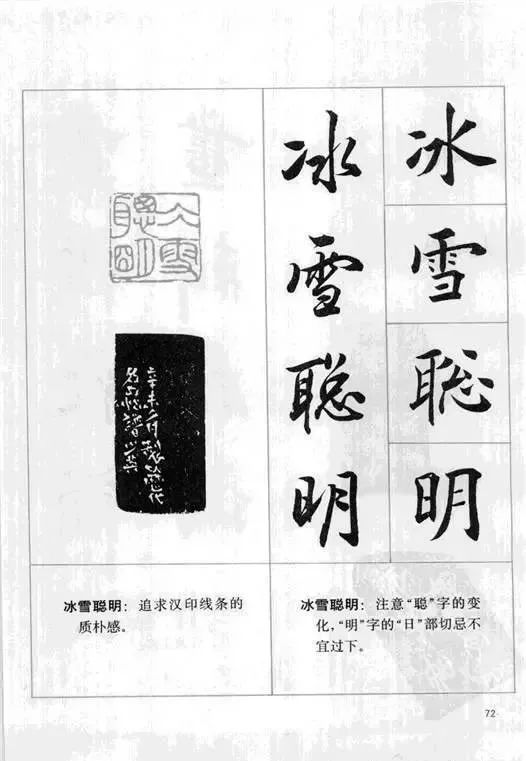 冰雪聪明
冰雪聪明
冰雪聪明
冰雪聪明：追求汉印线条的
质朴感。
冰雪聪明：注意“聪”字的变
化，“明”字的“日”部切忌不
宜过下。
72